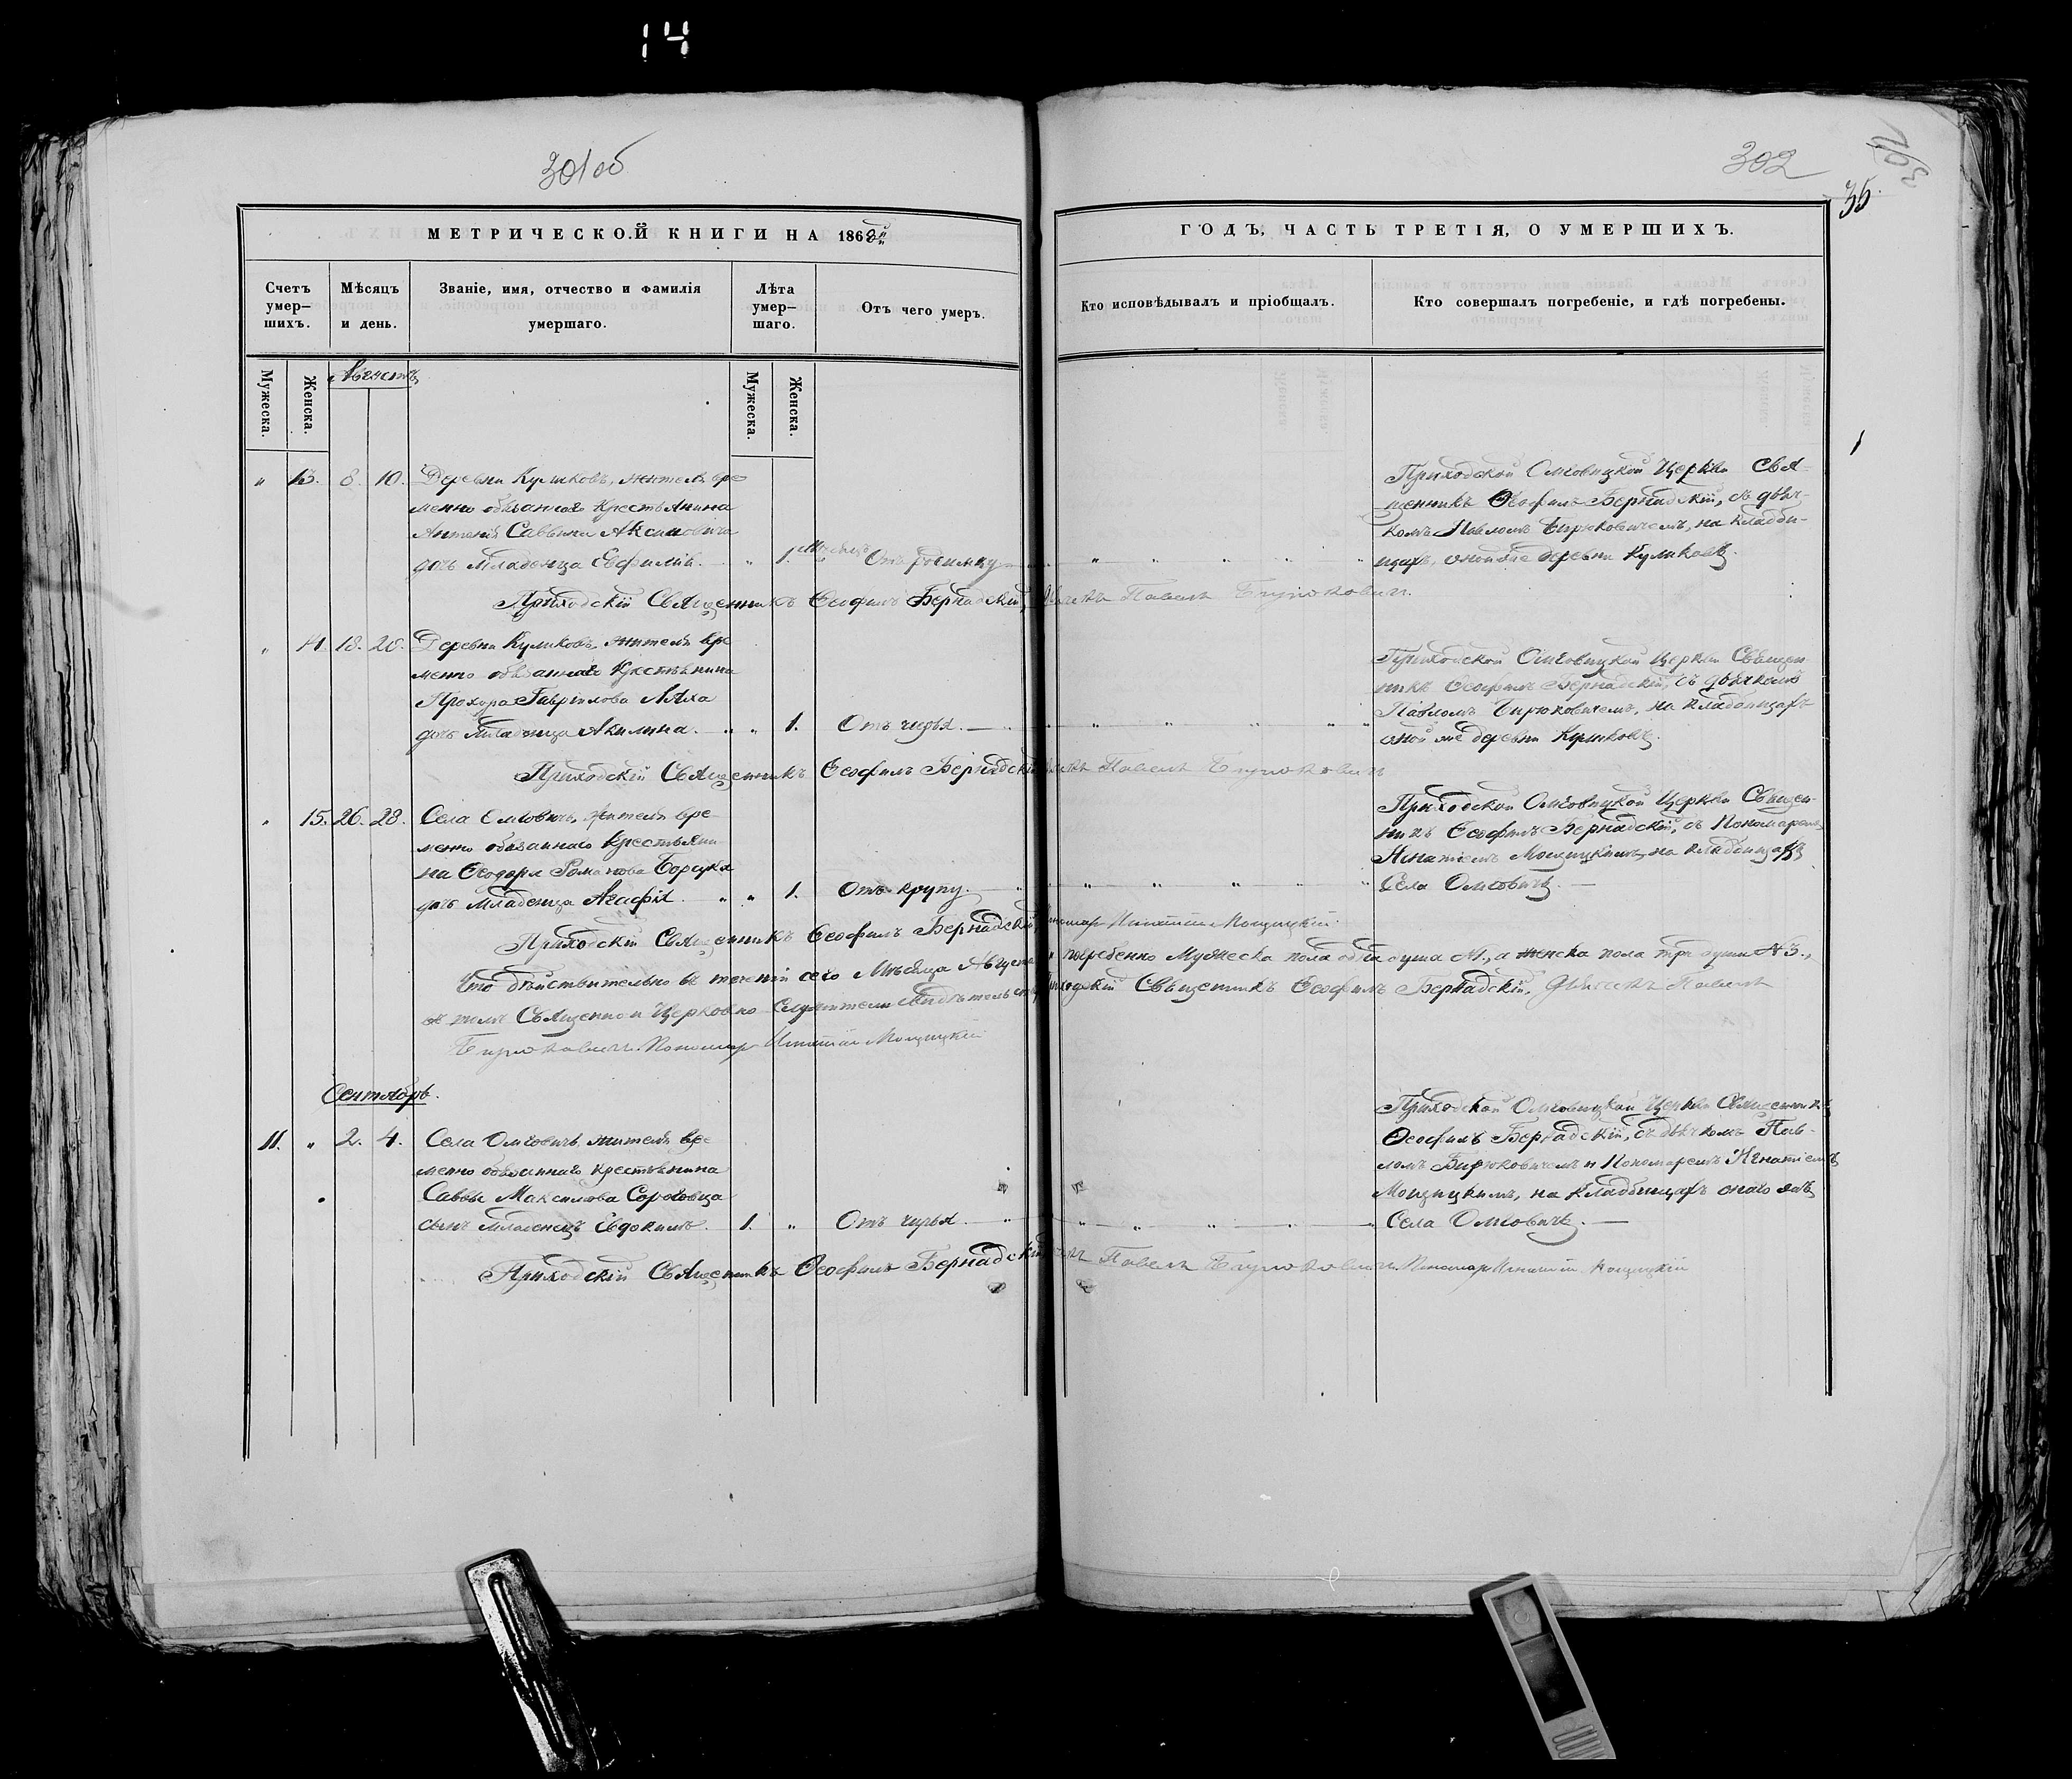 14
301об
302
35.
МЕТРИЧЕСКОЙ КНИГИ НА 1862й
ГОДЪ, ЧАСТЬ ТРЕТІЯ, О УМЕРШИХЪ.
Счетъ умер-шихъ.
Мѣсяцъ и день.
Званіе, имя, отчество и фамилія умершаго.
Лѣта умер-шаго.
Отъ чего умеръ.
Кто исповѣдывалъ и пріобщалъ.
Кто совершалъ погребеніе, и гдѣ погребены.
Мужеска.
Женска.
Августъ
Мужеска.
Женска.
" 13. 8. 10. Деревни Куликовъ, жителя вре
менно обязаннаго крестьянина
Антонія Саввина Аксиновича
дочь младенца Евфимія. " 1. Отъ родимцу
Приходской Омговицкой Церкви Свя-
щенникъ Ѳеофилъ Бернадскій, съ дьяч-
комъ Павломъ Бирюковичемъ, на кладби-
щахъ оной же деревни Куликовъ.
Приходскій Священникъ Ѳеофилъ Бернадскій, Дьячекъ Павелъ Бирюковичъ.
" 14. 18. 20. Деревни Куликовъ, жителя вре
менно обязаннаго крестьянина
Прохора Гавріилова Ляха
дочь младенца Акилина. " 1. Отъ чирья.
Приходской Омговицкой Церкви Священ
никъ Ѳеофилъ Бернадскій, съ дьячкомъ
Павломъ Бирюковичемъ, на кладбищахъ
оной же деревни Куликовъ.
Приходскій Священникъ Ѳеофилъ Бернадскій Дьячекъ Павелъ Бирюковичъ
" 15. 26. 28. Села Омговичъ, жителя вре-
менно обязаннаго крестьяни
на Ѳеодора Романова Борицка
дочь младенца Агафія. " 1. Отъ крупу.
Приходской Омговицкой Церкви Священ-
никъ Ѳеофилъ Бернадскій, съ Пономаремъ
Игнатіемъ Мощицкимъ, на кладбищахъ
Села Омговичъ.
Приходскій Священникъ Ѳеофилъ Бернадскій, Пономарь Игнатій Мощицкій.
Что дѣйствительно въ теченіи сего Мѣсяца Августа погребенно Мужеска пола одна душа №1., а женска пола три души №3.,
въ томъ Священно и Церковно-Служители свидѣтельствуемъ Приходскій Священникъ Ѳеофилъ Бернадскій, Дьячекъ Павелъ
Бирюковичъ. Пономарь Игнатій Мощицкій
Сентябрь.
11. " 2. 4. Села Омговичъ, жителя вре
менно обязаннаго крестьянина
Саввы Максимова Сороговца
сынъ младенецъ Евдокимъ. 1. " Отъ чирья.
Приходской Омговицкой Церкви Священникъ
Ѳеофилъ Бернадскій, съ дьячкомъ Пав-
ломъ Бирюковичемъ и Пономаремъ Игнатіемъ
Мощицкимъ, на кладбищахъ онаго же
Села Омговичъ.
Приходскій Священникъ Ѳеофилъ Бернадскій Дьячекъ Павелъ Бирюковичъ. Пономарь Игнатій Мощицкій